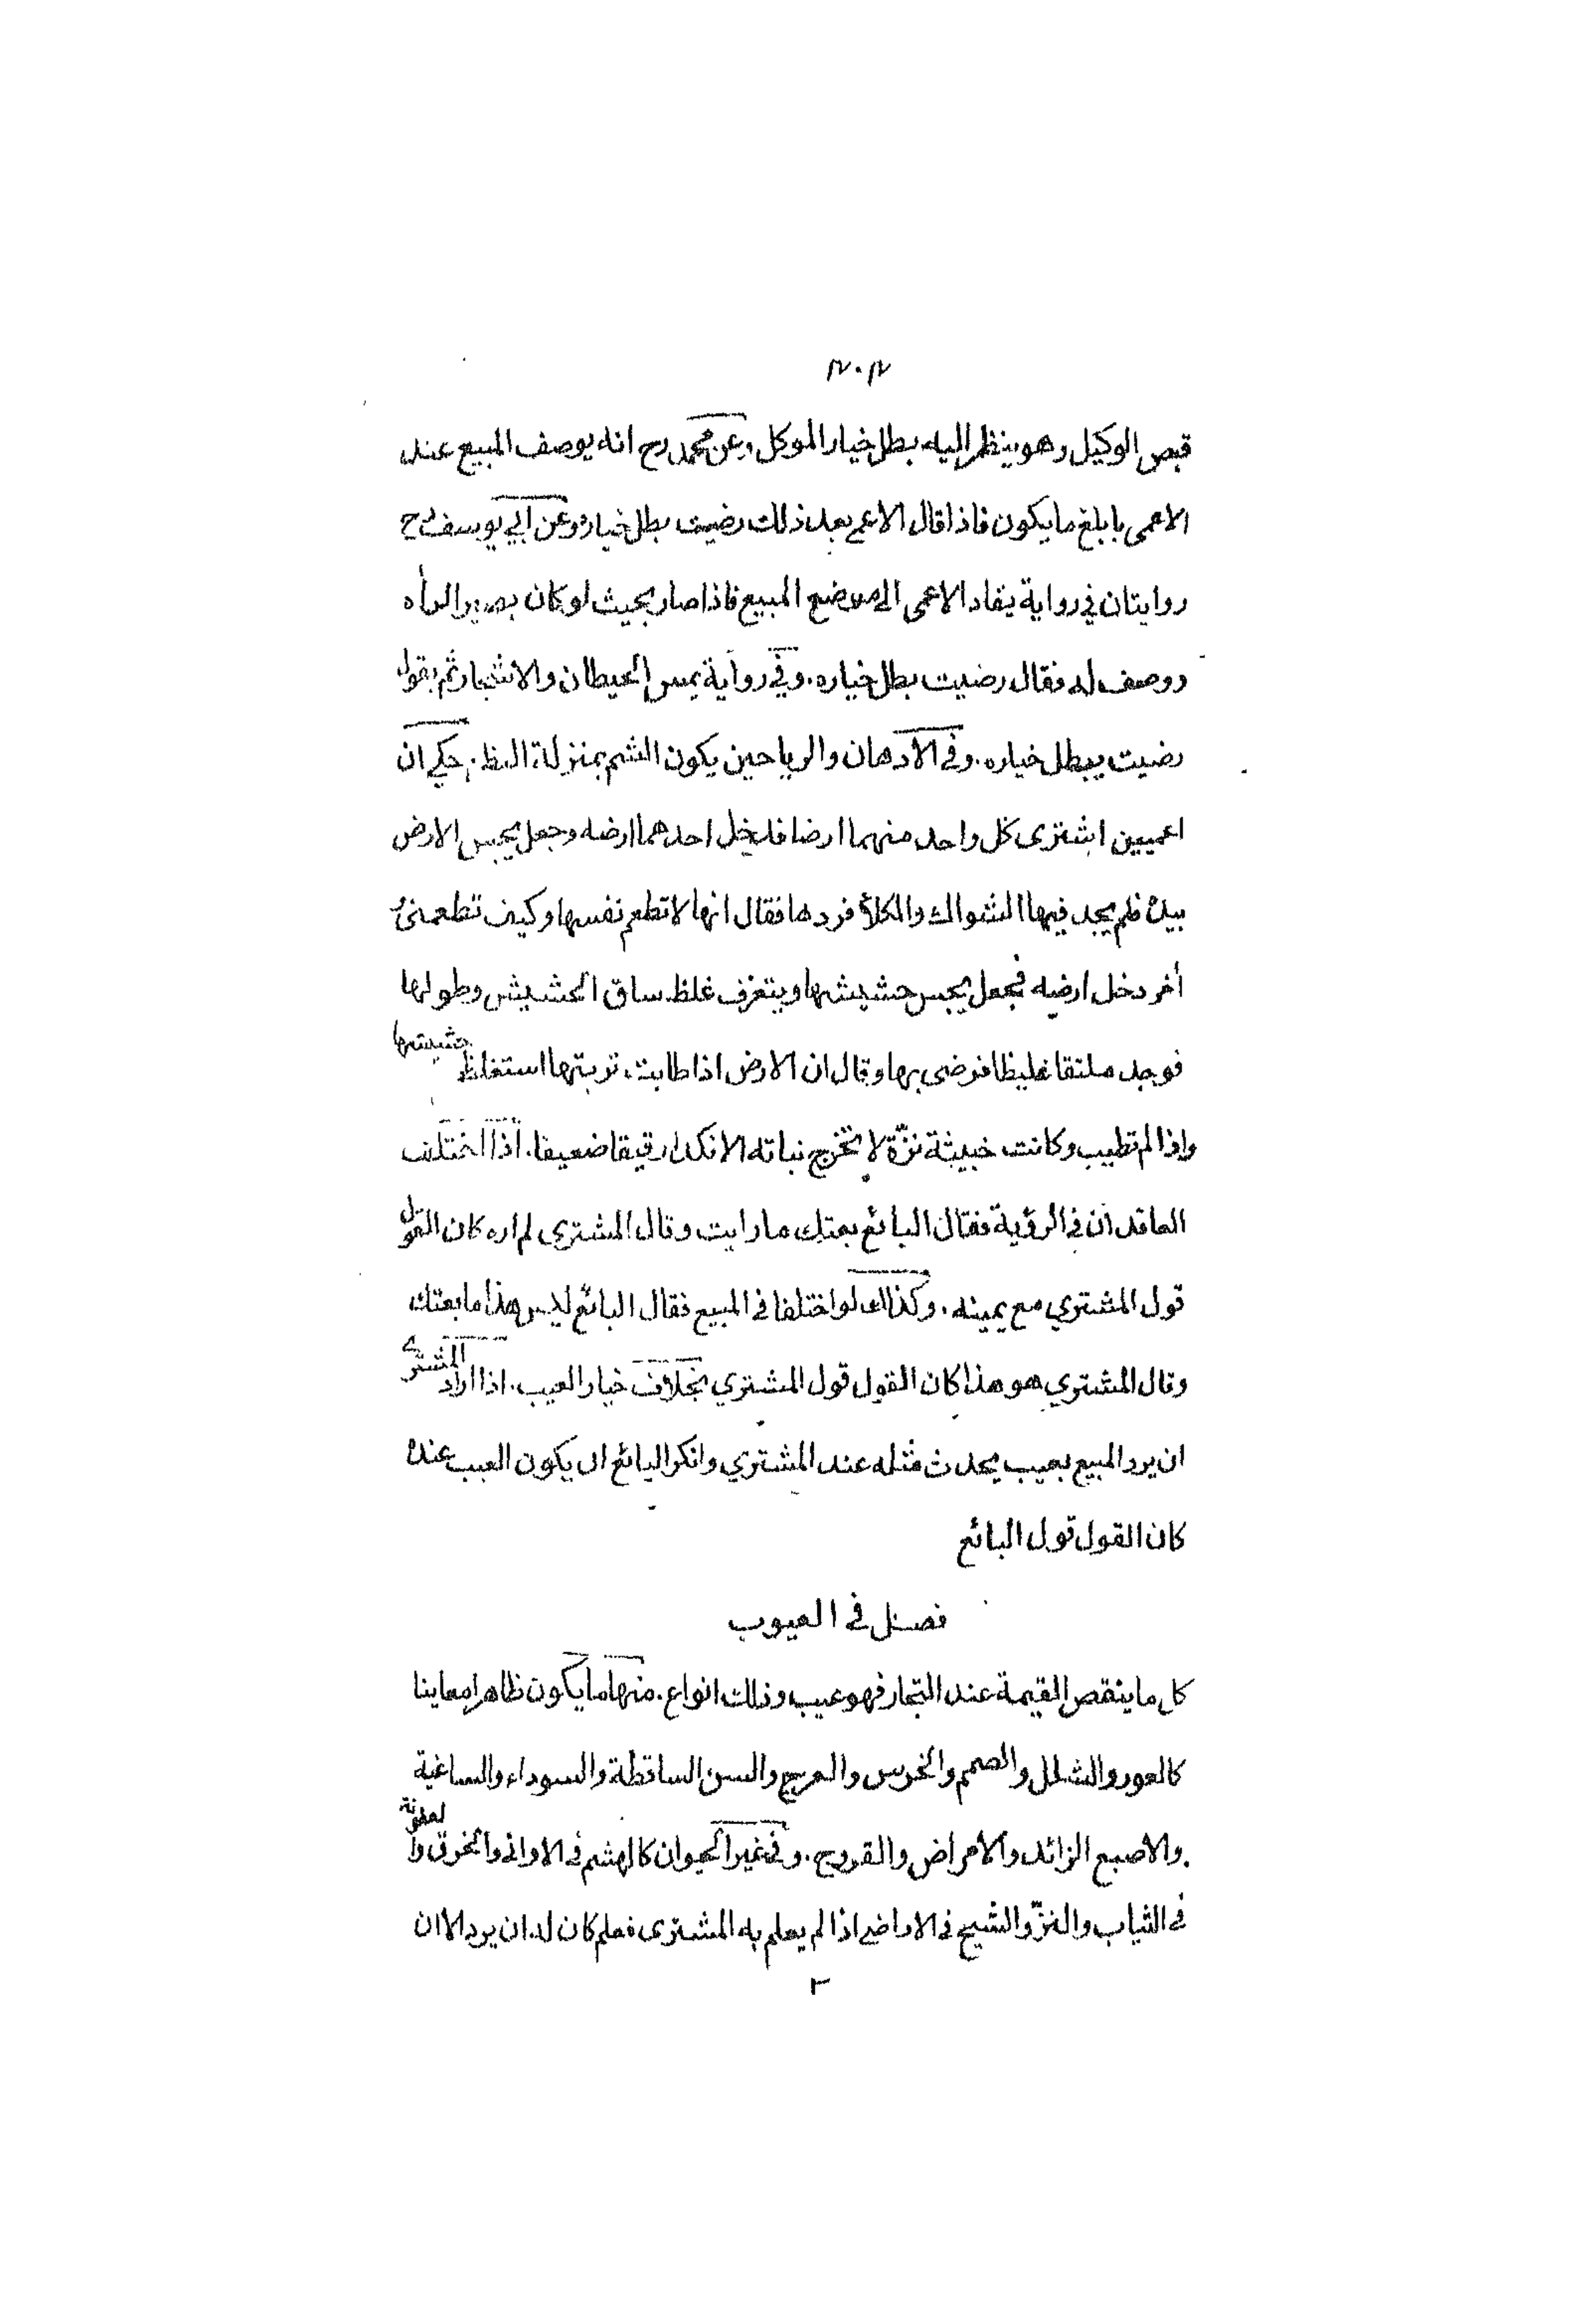 ٢٠٢
قبض الوكيل وهو ينظر اليه بطل خيار الموكل وعن محمد رح انه يوصف المبيع عند
الاعمى بابلغ ما يكون فاذا قال الاعمى بعد ذلك رضيت بطل خياره وعن ابي يوسف رح
روايتان في رواية يقاد الاعمى الى موضع المبيع فاذا صار بحيث لو كان بصيرا لرأه
ووصف له فقال رضيت بطل خياره. وفي رواية يمس الحيطان والاشجار ثم يقول
رضيت يبطل خياره. وفي الادهان والرياحين يكون الشم بمنزلة النظر. حكي ان
اعميين اشترى كل واحد منهما ارضا فدخل احدهما ارضه وجعل يجس الارض
بيده فلم يجد فيها الشواك والكلأ فردها فقال انها لا تطعم نفسها وكيف تطعمني
أخر دخل ارضه فجعل يجس حشيشها ويتعرف غلظ ساق الحشيش وطولها
فوجد ملتفا غليظا فرضى بها وقال ان الارض اذا طابت تربتها استغلظ حشيشها
واذا لم تطيب وكانت خبيثة نزّة لا تخرج نباته الا نكدا رقيقا ضعيفا. اذا اختلف
العاقدان في الرؤية فقال البائع بعتك ما رايت وقال المشتري لم اره كان القول
قول المشتري مع يمينه. وكذلك لو اختلفا في المبيع فقال البائع ليس هذا ما بعتك
وقال المشتري هو هذا كان القول قول المشتري بخلاف خيار العيب. اذا اراد المشترى
ان يرد المبيع بعيب يحدث مثله عند المشتري وانكر البائع ان يكون العيب عنده
كان القول قول البائع
فصل في العيوب
كل ما ينقص القيمة عند التجار فهو عيب وذلك انواع. منها ما يكون ظاهرا معاينا
كالعور والشلل والصمم والخرس والعرج والسن الساقطة والسوداء والساغية
والاصبع الزائد والامراض والقروح. وفي غير الحيوان كالهشم في الاواني والخرق والعفونة
في الثياب والنزّ والشيح في الاراضي اذا لم يعلم به المشترى فعلم كان له ان يرد الا ان
٢